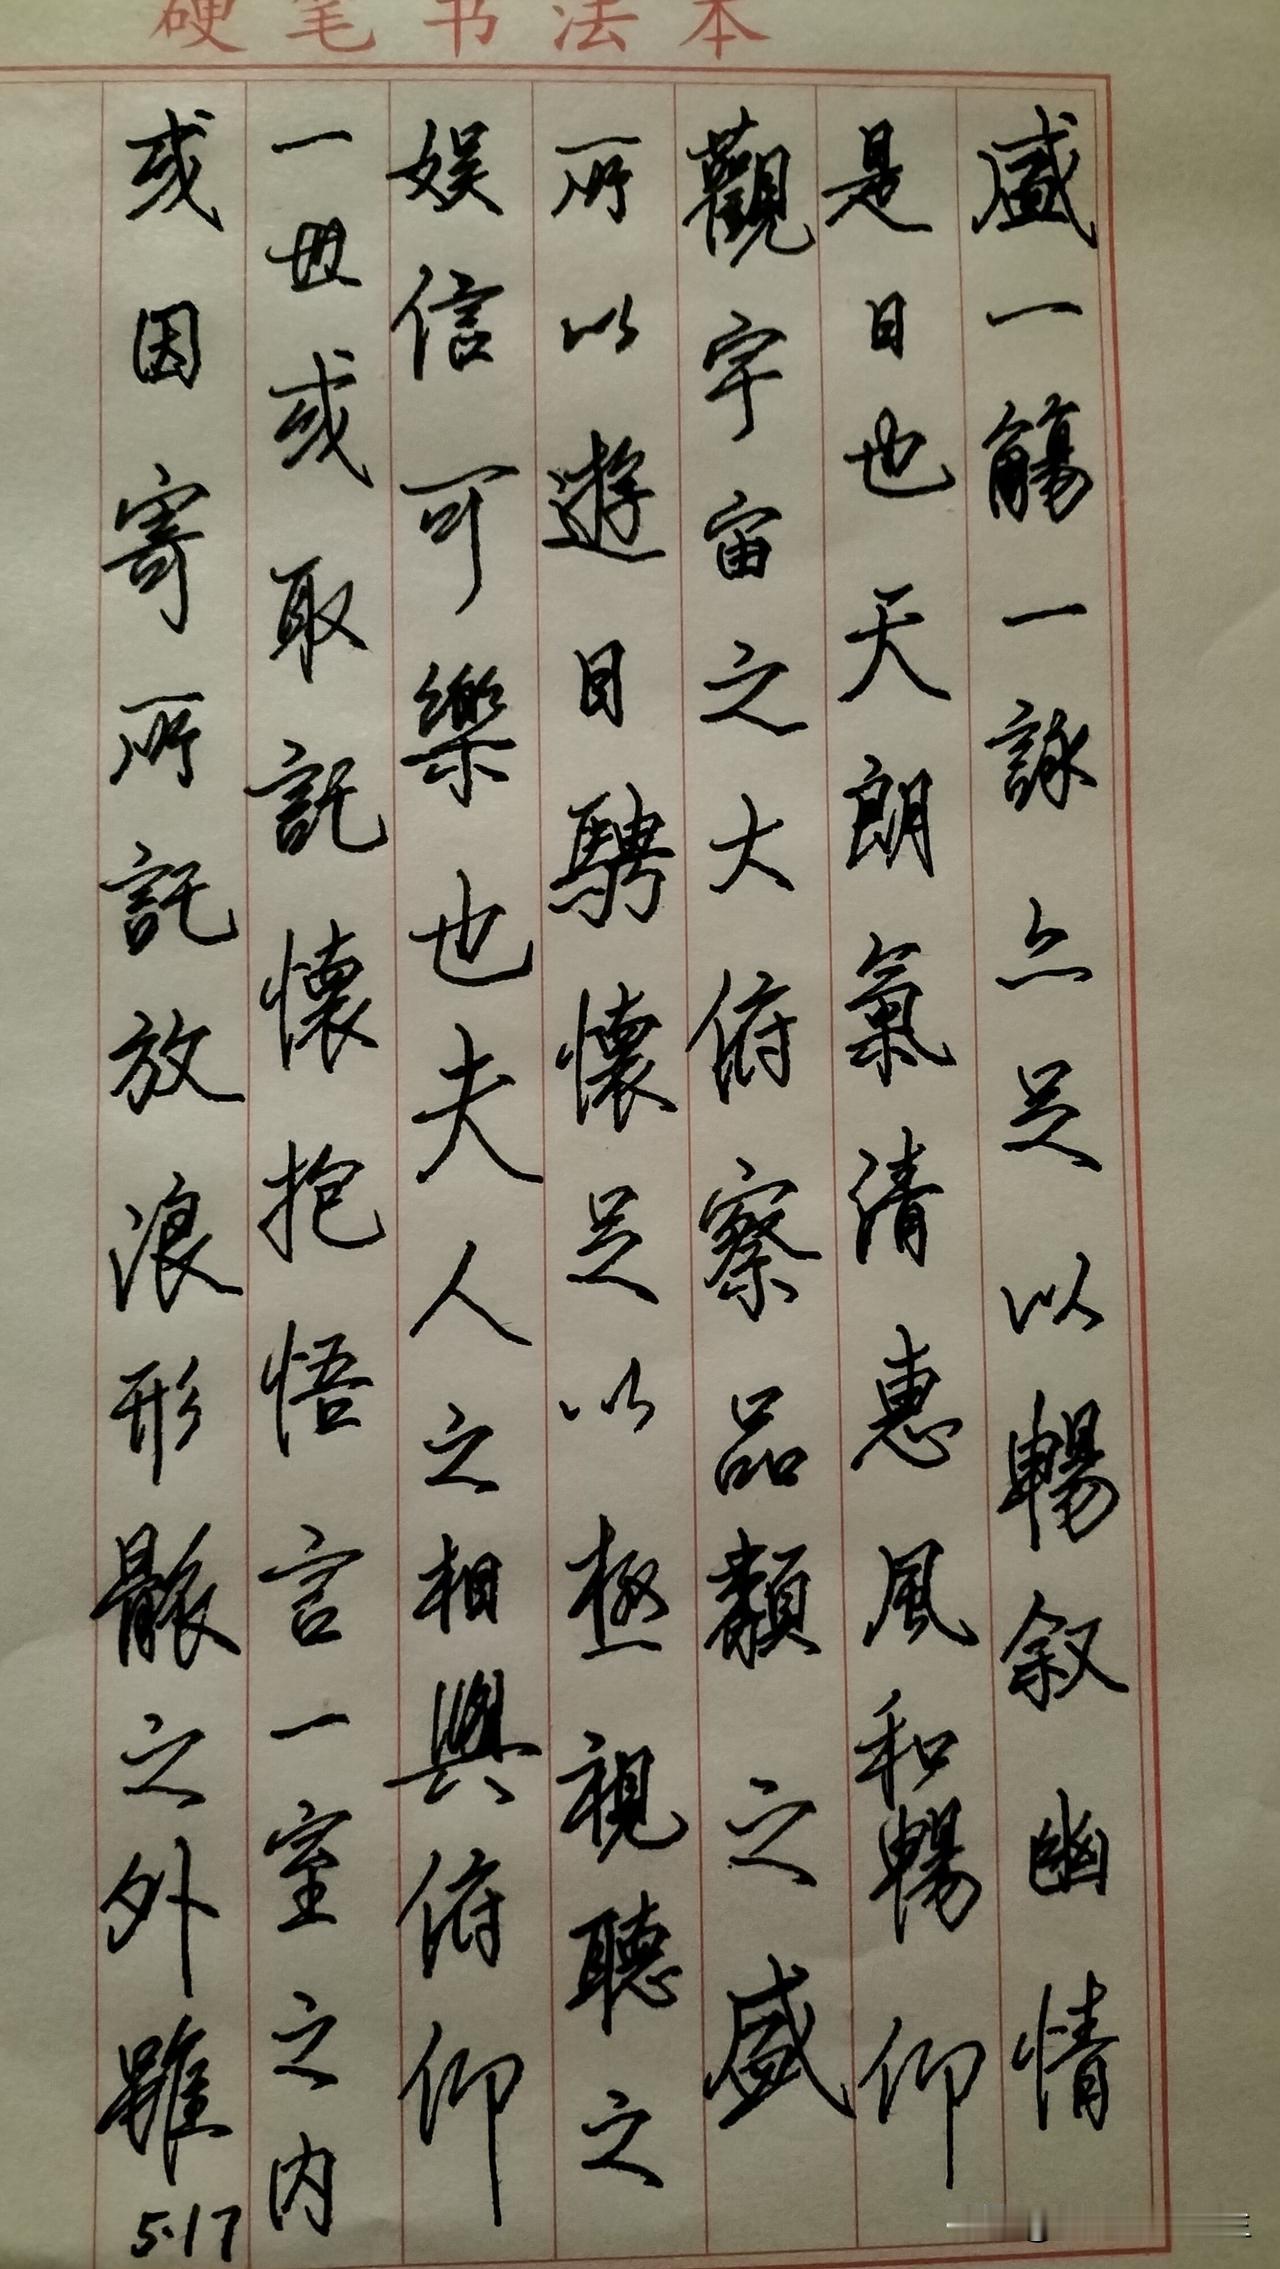 硬笔书法本
盛一觴一詠亦足以暢叙幽情
是日也天朗氣清惠風和暢仰
觀宇宙之大俯察品類之盛
所以遊目騁懷足以極視聽之
娱信可樂也夫人之相與俯仰
一世或取託懷抱悟言一室之内
或因寄所託放浪形骸之外雖
5.17